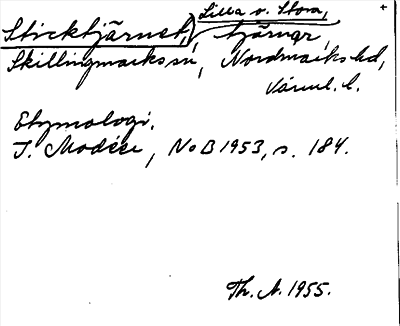 Lilla o. Stora,
Sticktjärnet, tjärnar,
Skillingmarks sn, Nordmarks hd,
Värml. l.
Etymologi.
I. Modéer, NoB 1953, s. 184.
Th. A. 1955.